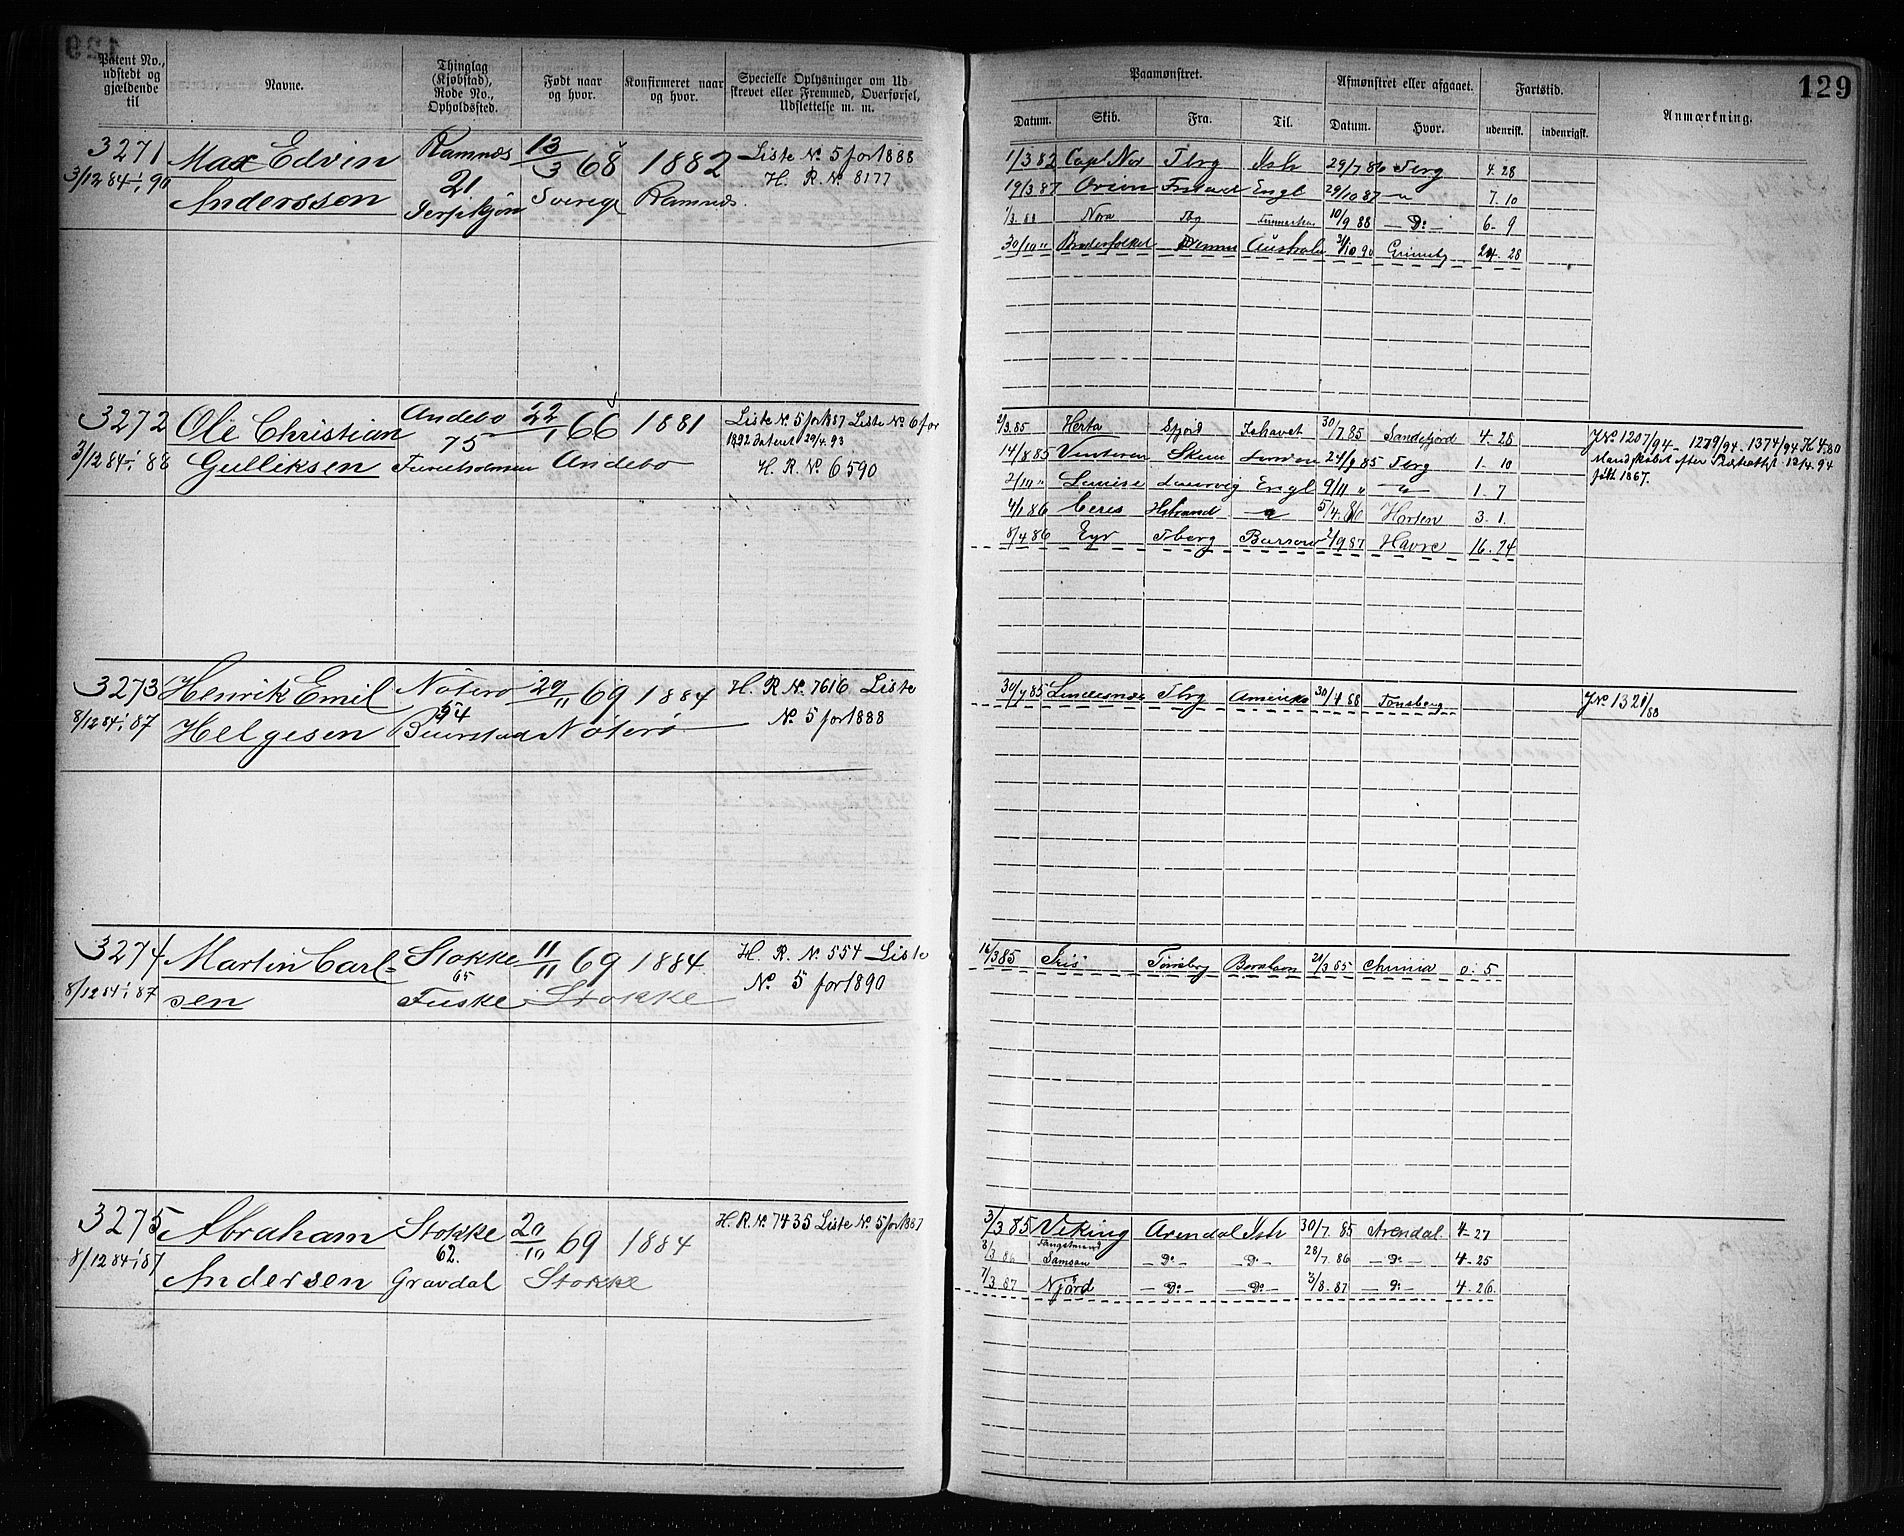 129
Patent No., udstedt og gjældende til
Navne.
Thinglag (Kjøbstad), Rode No., Opholdssted.
Født naar og hvor.
Konfirmeret naar og hvor.
Specielle Oplysninger om Udskrevet eller Fremmed, Overførsel, Udslettelse m. m.
3271 Max Edvin Ramnæs 13/3 68 1882 Liste No. 5 for 1888
3/12 84 - 1/1 90 21 H. R. No. 8177
Anderssen Sverige Ramnæs.
3272 Ole Christian Andebo 22/1 66 1881 Liste No. 5 for 1887 Liste No. 6 for
75 1892 dateret 29/4 93
3/12 84 - 1/1 88 Gulliksen Andebo H. R. No. 6590
3273 Henrik Emil Nøterø 29/11 69 1884 H. R. No. 7616 Liste
8/12 84 - 1/1 87 Helgesen Nøterø No. 5 for 1888
3274 Martin Carl- Stokke 11/11 69 1884 H. R. No. 554 Liste
65
8/12 84 - 1/1 87 sen Fuske Stokke No. 5 for 1890
3275 Abraham Stokke 20/10 69 1884 H. R. No. 7435 Liste No. 5 for 1887
62.
8/12 84 - 1/1 87 Andersen Gravdal Stokke
129
Paamønstret. Afmønstret eller afgaaet. Fartstid. Anmærkning.
Datum. Skib. Fra. Til. Datum. Hvor. udenrigsk. indenrigsk.
1/3 82 Capt Nor Tbrg Ish 29/7 86 Tbrg 4. 28
19/3 87 Orion Engl 29/10 87 - " 7. 10
1/3. 88 Nora Tbg 10/9 88 - Do - 6 - 9
30/10 " Broderfolket Australien 90 Grimsby 24. 28
2/3.85 Herta Sfjord Ishavet 30/7.85 Sandefjord 4 - 28 JNo 1207/94 - 1279/94 - 1374/94
14/8.85 Skien London 24/9 85 Tbrg 1 - 10
2/10 " Louise Laurvig Engl 9/11 " - " - 1. 7 født 1867.
4/1 86 Ceres - " 5/4. 86 Horten 3. 1.
8/4 86 Eyr Tberg Barrow 2/9 87 Havre 16. 24
30/7 85 Lindesnæs Tbrg Amerika 30/4 88 Tønsberg JNo 1321/88
16/3 85 Iris Tønsberg 21/3 85 0. 5
3/3 85 Viking Arendal Ish 30/7. 85 Arendal. 4 - 27
3/3 86 Fangstmand Samson - Do - - Do - 28/7. 86 - Do - 4 - 25
7/3. 87 Njørd - Do - - Do - 3/8. 87 - Do - 4 - 26